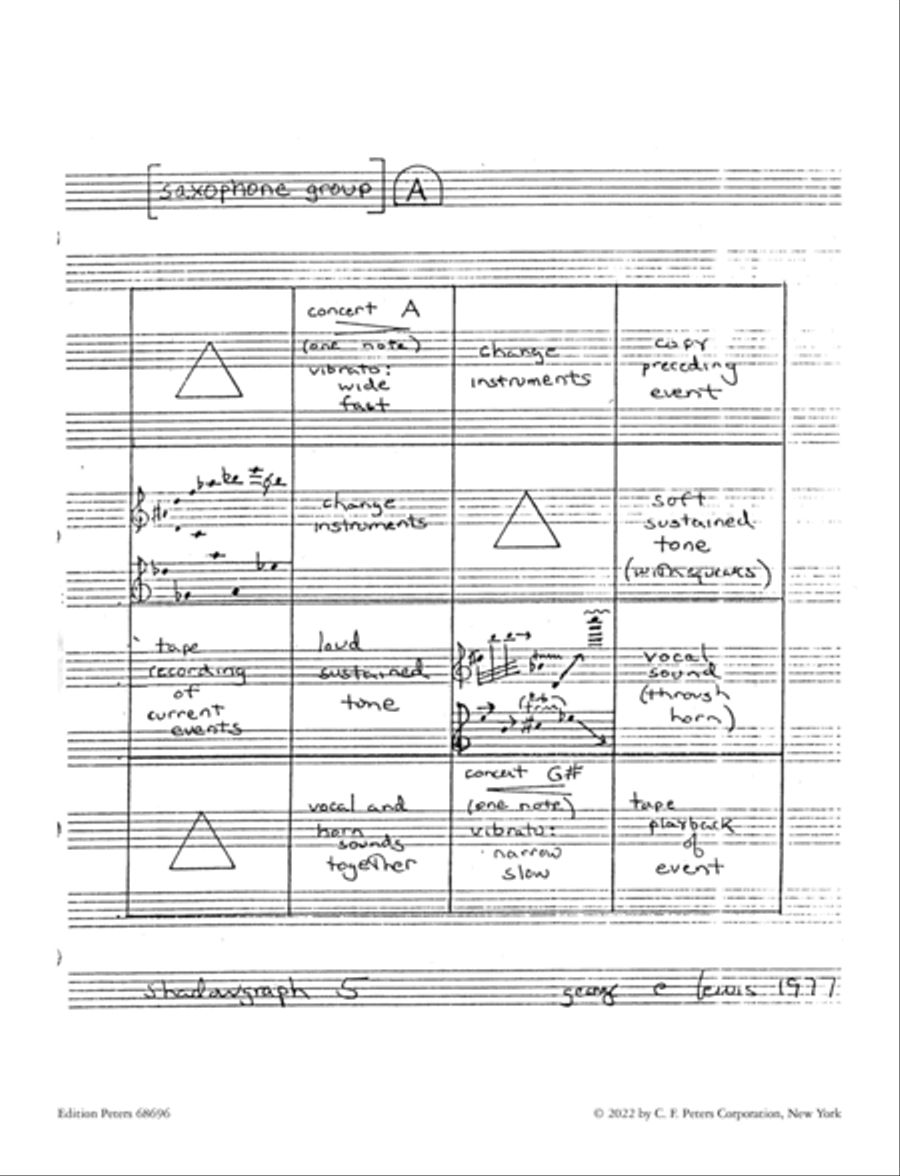 [saxophone group] A
concert A
(one note)
vibrato:
wide
fast
change
instruments
copy
preceding
event
change
instruments
soft
sustained
tone
(with squeaks)
tape
recording
of
current
events
loud
sustained
tone
vocal
sound
(through
horn)
vocal and
horn
sounds
together
concert G#
(one note)
vibrato:
narrow
slow
tape
playback
of
event
shadowgraph 5
george e lewis 1977
Edition Peters 68696
© 2022 by C. F. Peters Corporation, New York